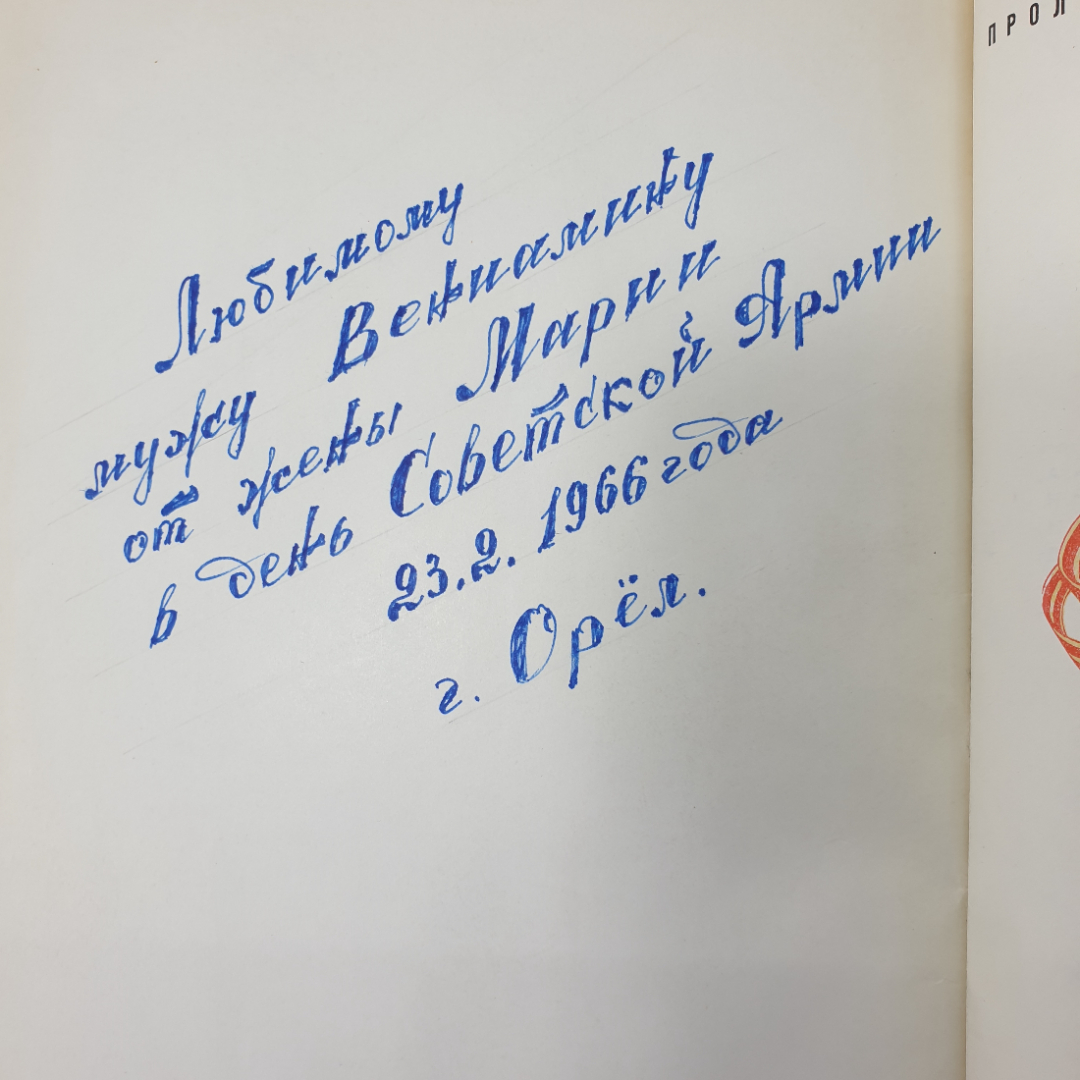 Любимому
мужу Вениамину
от жены Марии
в день Советской Армии
23.2. 1966 года
г. Орёл.
ПРОЛ